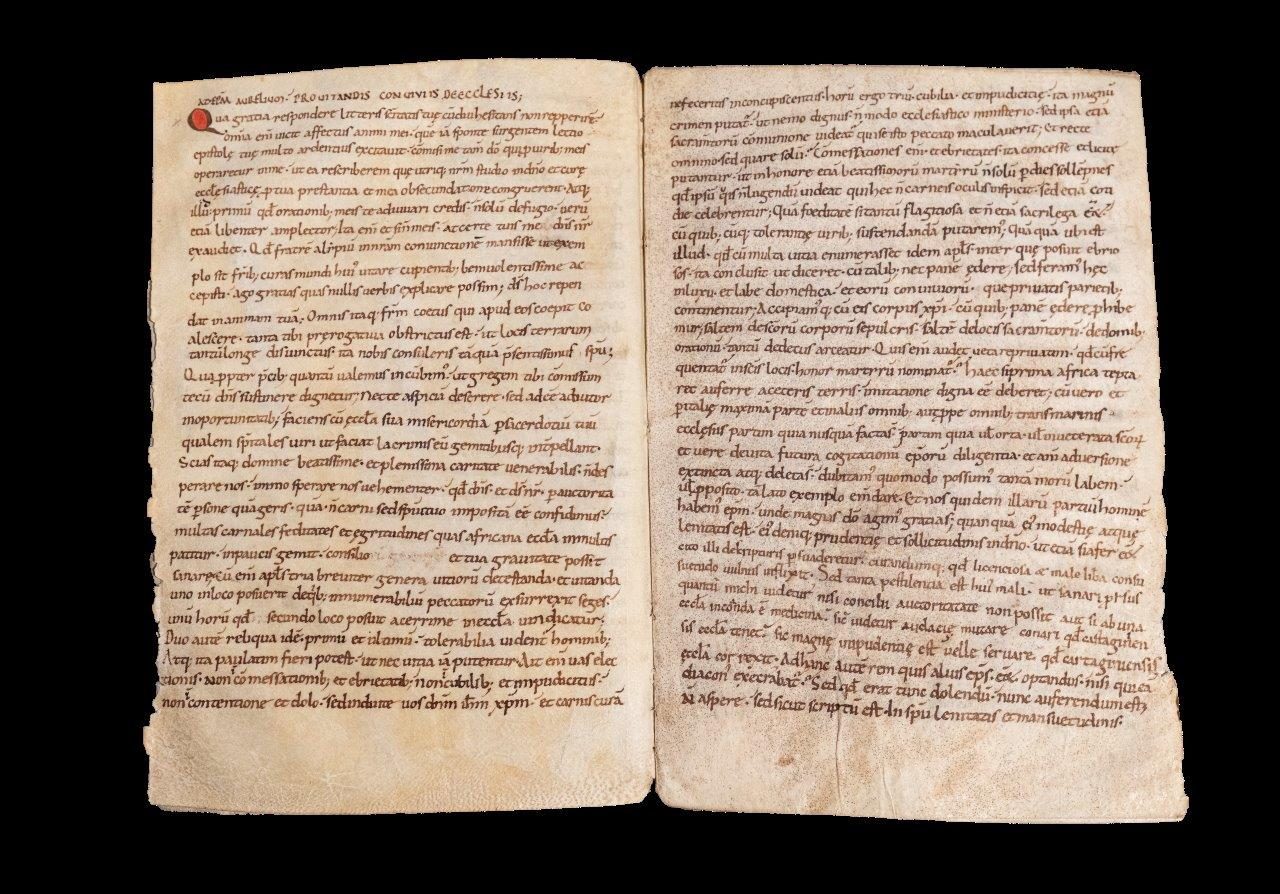 AD EPM AURELIUM· PRO VITANDIS CONVIVIIS DE ECCLESIIS;
Qua gratia respondere litteris scitatis tuę cũ diu hesitans non repperirē·
Omīa em̄ vicit affectus animi mei· que iā sponte surgentem lectio
epistolę tuę multo ardentius excitavit· cōmisime tam̄ dō qui ꝑ virib; meis
operaretur in me· ut ea rescriberem que utriq; nr̄m studio in dn̄o et curę
ecclesiasticę· ꝑ tua prestantia et mea obsecundatione congruerent· Atq;
illũ primũ qd̄ orationib; meis te adiuvari credis· ñ solũ defugio· verũ
etiā libenter amplector; Ita em̄ et si ñ meis· at certe tuis me dn̄s nr̄
exaudiet· Qd̄ fratrē alipiũ in nrām coniunctionē mansisse ut exem
plo sit frīb; curas mundi huiꝰ vitare cupientib; benivolentissime ac
cepisti· ago gratias quas nullis verbis explicare possim; dn̄s hoc repen
dat in animam tuā; Omnis itaq; fr̄m coetus qui apud eos coepit co
alescere· tanta tibi prerogativa obstrictus est· ut locis terrarum
tantũ longe disiunctis· ita nobis consuleris tā quā p̄sentissimus spū;
Qua ꝓpter p̄cib; quantũ valemus incũbimꝰ· ut gregem tibi commissum
tecũ dn̄s sustinere dignetur; nec te aspiciā deserere· sed adēē adiutor
in oportunitatib; faciens cũ eccl̄a sua misericordiā ꝑ sacerdotiũ tuũ
qualem spn̄tales viri ut faciat lacrimis eũ gemitibusq; int̄pellant·
Scias itaq; domine beatissime· et plenissima caritate venerabilis· ñ des
perare nos· immo sperare nos vehementer· qd̄ dn̄s· et ds̄ nr̄· ꝑ auctorita
tē ꝑsone qua geris· qua ñ carni sed sp̄utuo impositā eē confidimus·
multas carnales feditates et egritudines quas africana eccl̄a in multis
patitur· in paucis gemit· consilio et tua gravitate possit
sanarę; Cũ em̄ apls̄ tria breviter genera vitiorũ detestanda· et vitanda
uno in loco posuerit de q̄b; innumerabiliũ peccatorũ exsurrexit seges·
unũ horũ qd̄ secundo loco posuit acerrime in eccl̄a vindicatur;
Duo autē reliqua id ē· primũ et ultimũ· tolerabilia vident̄ hominib;
Atq; ita paulatim fieri potest· ut nec vitia iā putentur· Ait em̄ vas elec
tionis· Non cōmessationib; et ebrietatib; non cubilib; et impudicitiis·
non contentione et dolo· sed induite vos dn̄m ih̄m xp̄m· et carnis curā
ne feceritis in concupiscentiis· horũ ergo triũ· cubilia· et impudicitię· ita magnũ
crimen putat̄· ut nemo dignus ñ modo ecclesiastico ministerio· sed ipsa etiā
sacramtorũ comunione videat̄ qui se isto peccato maculaverit; Et recte
omnino· sed quare solũ· Comessationes em̄· et ebrietates· ita concesse et licitę
putantur· ut in honore etiā beatissimorũ martyrũ ñ solũ ꝑ dies sollēpnes
qd̄ ipsũ q̄is ñ lugendũ videat qui hec ñ carneis oculis inspicit· sed etiā coti
die celebrentur; Qua foeditate si tantũ flagitiosa et ñ etiā sacrilega
cũ quib; cũq; tolerantię virib; sustendandā putarem; Quā quā ubi est
illud· qd̄ cũ multa vitia enumerasset idem apls̄· inter quę posuit ebrio
sos· ita conclusit ut diceret· cũ talib; nec panē edere; sed feramꝰ hęc
in luxu· et labe domestica· et eorũ conviviorũ· que privatis parietib;
continentur; Accipiamꝰq; cũ eis corpus xp̄i· cũ quib; panē edere ꝓhibe
mur; saltem de scōrũ corporũ sepulcris· saltē de locis sacramtorũ· de domib;
orationũ· tantũ dedecus arceatur· Quis em̄ audet vetare privatim· qd̄ cũ fre
quentat in scīs locis· honor martyrũ nominat̄; Haec si prima africa tepta
ret auferre a ceteris terris· imitatione digna eē deberet; cũ vero et
ꝑ italię maxima parte et in aliis omnib; aut ꝓpe omnib; transmarinis
ecclesiis partim quia nusquā factas· partim quia vl̄ orta· vl̄ inveterata
et vere de vita futura cogitantiũ ep̄orũ diligentia· et am̄ adversione
extincta atq; deleta s̄· dubitam̄ quomodo possimꝰ tantā morũ labem·
vl̄ ꝓposito· ta lato exemplo em̄dare· Et nos quidem illarũ partiũ hominē
habemꝰ ep̄m· unde magnas dō agimꝰ gratias; quanquā eiꝰ modestię atq;
lenitatis est· eiꝰ deniq; prudentię et sollicitudinis in dn̄o· ut etiā si afer
cito illi de scripturis ꝑsuaderetur; curandumq; qd̄ licenciosa et malo libera consu
etudo vulnus inflixit· Sed tanta pestilencia est huiꝰ mali· ut sanari ꝓrsus
quantũ michi videtur nisi concilii auctoritate non possit aut si ab una
eccl̄a incoanda ē medicina· sic videtur audacię mutare conari qd̄ cartaginen
sis eccl̄a tenet· sic magnę impudentię est velle servare qd̄ cartaginensis
eccl̄a correxit· Adhanc autē rem quis alius ep̄s· optandus· nisi qui ea
diacon̄ execrabat̄· Sed qd̄ erat tunc dolendũ· nunc auferendum est;
Ñ aspere· sed sicut scriptũ est· In spū lenitatis et mansuetudinis·